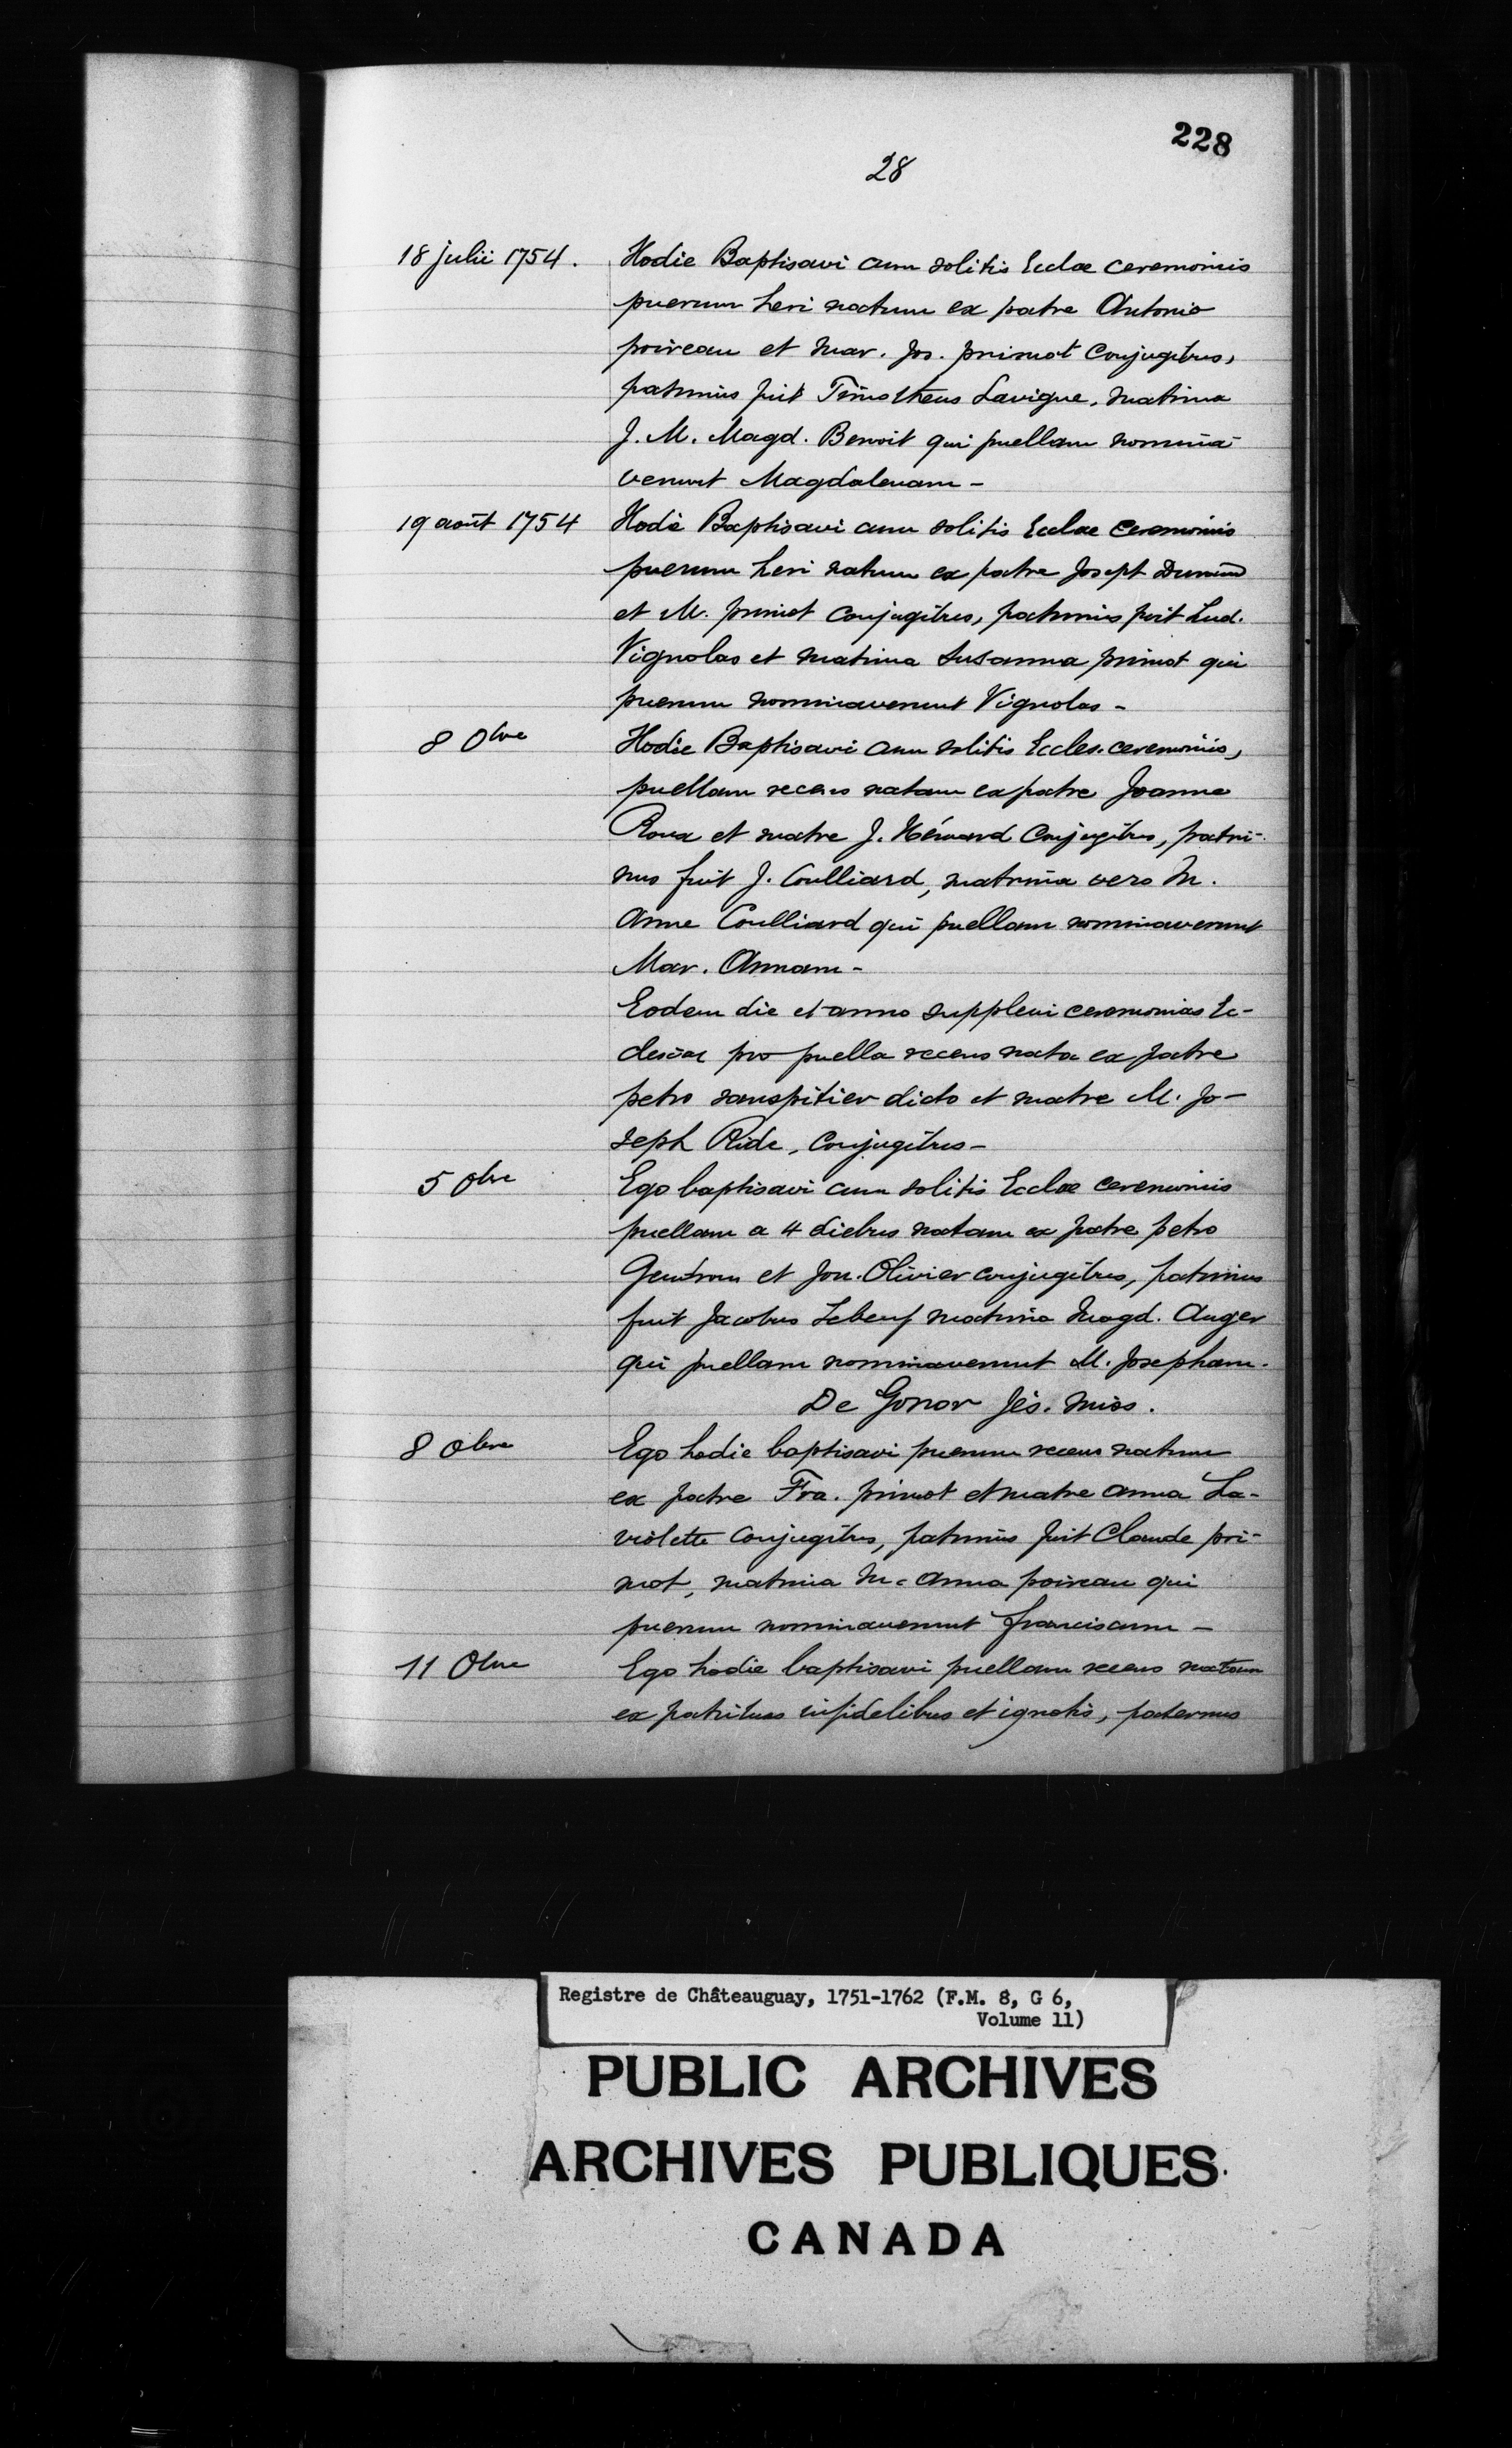 228
28
18 julii 1754. Hodie Baptisavi cum solitis Ecclae ceremoniis
puerum heri natum ex patre Antonio
poireau et mar. Jos. primot Conjugibus,
patrinus fuit Timotheus Lavigne, matrina
J. M. Magd. Benoit qui puellam nomina-
verunt Magdalenam -
19 août 1754 Hodie Baptisavi cum solitis Ecclae ceremoniis
puerum heri natum ex patre Josept
et M. primot Conjugibus, patrinus fuit Lud.
Vignolas et matrina Susanna primot qui
puerum nominaverunt Vignolas -
8 Obre Hodie Baptisavi cum solitis Eccles. ceremoniis,
puellam recens natam ex patre Joanne
Roux et matre J. Hénard Conjugibus, patri-
nus fuit J. Coulliard, matrina vero M.
Anne Coulliard qui puellam nominaverunt
Mar. Annam -
Eodem die et anno supplevi ceremonias Ec-
clesiae pro puella recens nata ex patre
petro sanspitier dicto et matre M. Jo-
seph Ride, Conjugibus -
5 Obre Ego baptisavi cum solitis Ecclae ceremoniis
puellam a 4 diebus natam ex patre petro
Gendron et Jou. Olivier conjugibus, patrinus
fuit Jacobus Lebeuf matrina Magd. Auger
qui puellam nominaverunt M. Josepham.
De Gonor Jés. miss.
8 Obre Ego hodie baptisavi puerum recens natum
ex patre Fra. primot et matre anna La-
violette Conjugibus, patrinus fuit Claude pri-
mot, matrina M. Anna poireau qui
puerum nominaverunt franciscum -
11 Obre Ego hodie baptisavi puellam recens natam
ex patribus infidelibus et ignotis, paternus
Registre de Châteauguay, 1751-1762 (F.M. 8, G 6,
Volume 11)
PUBLIC ARCHIVES
ARCHIVES PUBLIQUES
CANADA